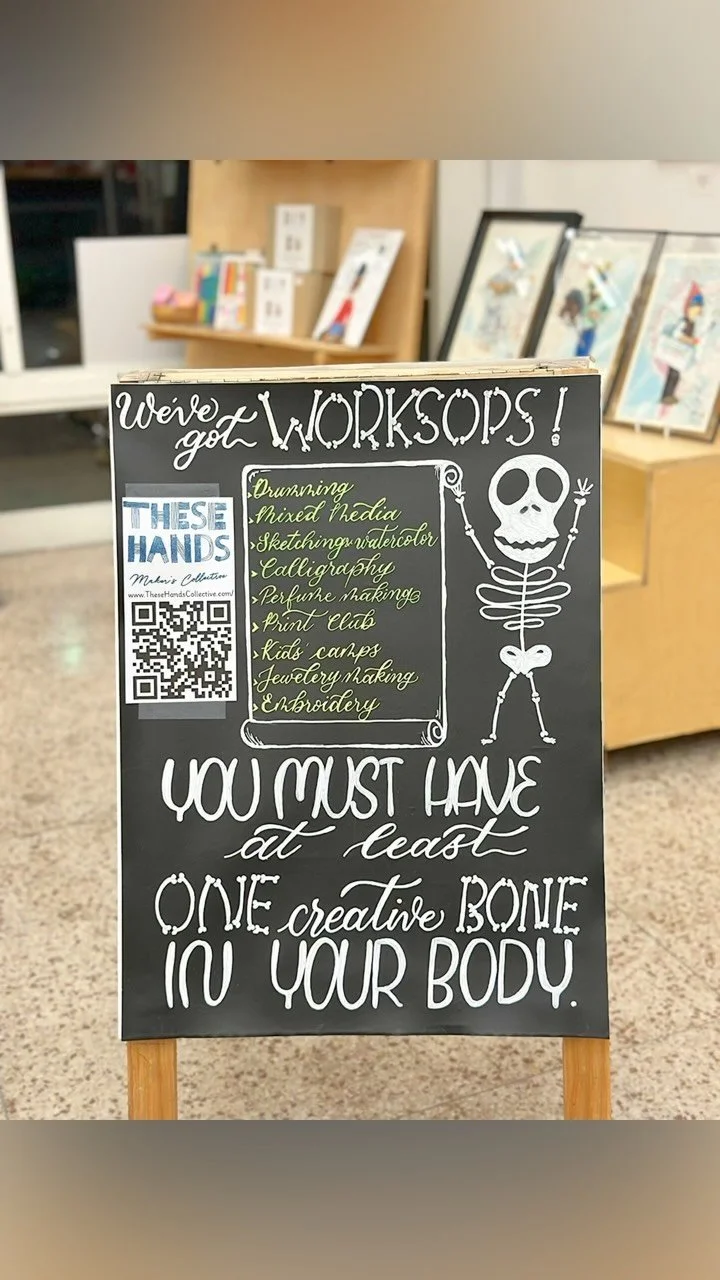 We've got WORKSOPS!
THESE
HANDS
Maker's Collective
www.TheseHandsCollective.com/
›Drumming
›Mixed Media
›Sketching & watercolor
›Calligraphy
›Perfume making
›Print Club
›Kids camps
›Jewelery making
›Embroidery
YOU MUST HAVE
at least
ONE creative BONE
IN YOUR BODY.